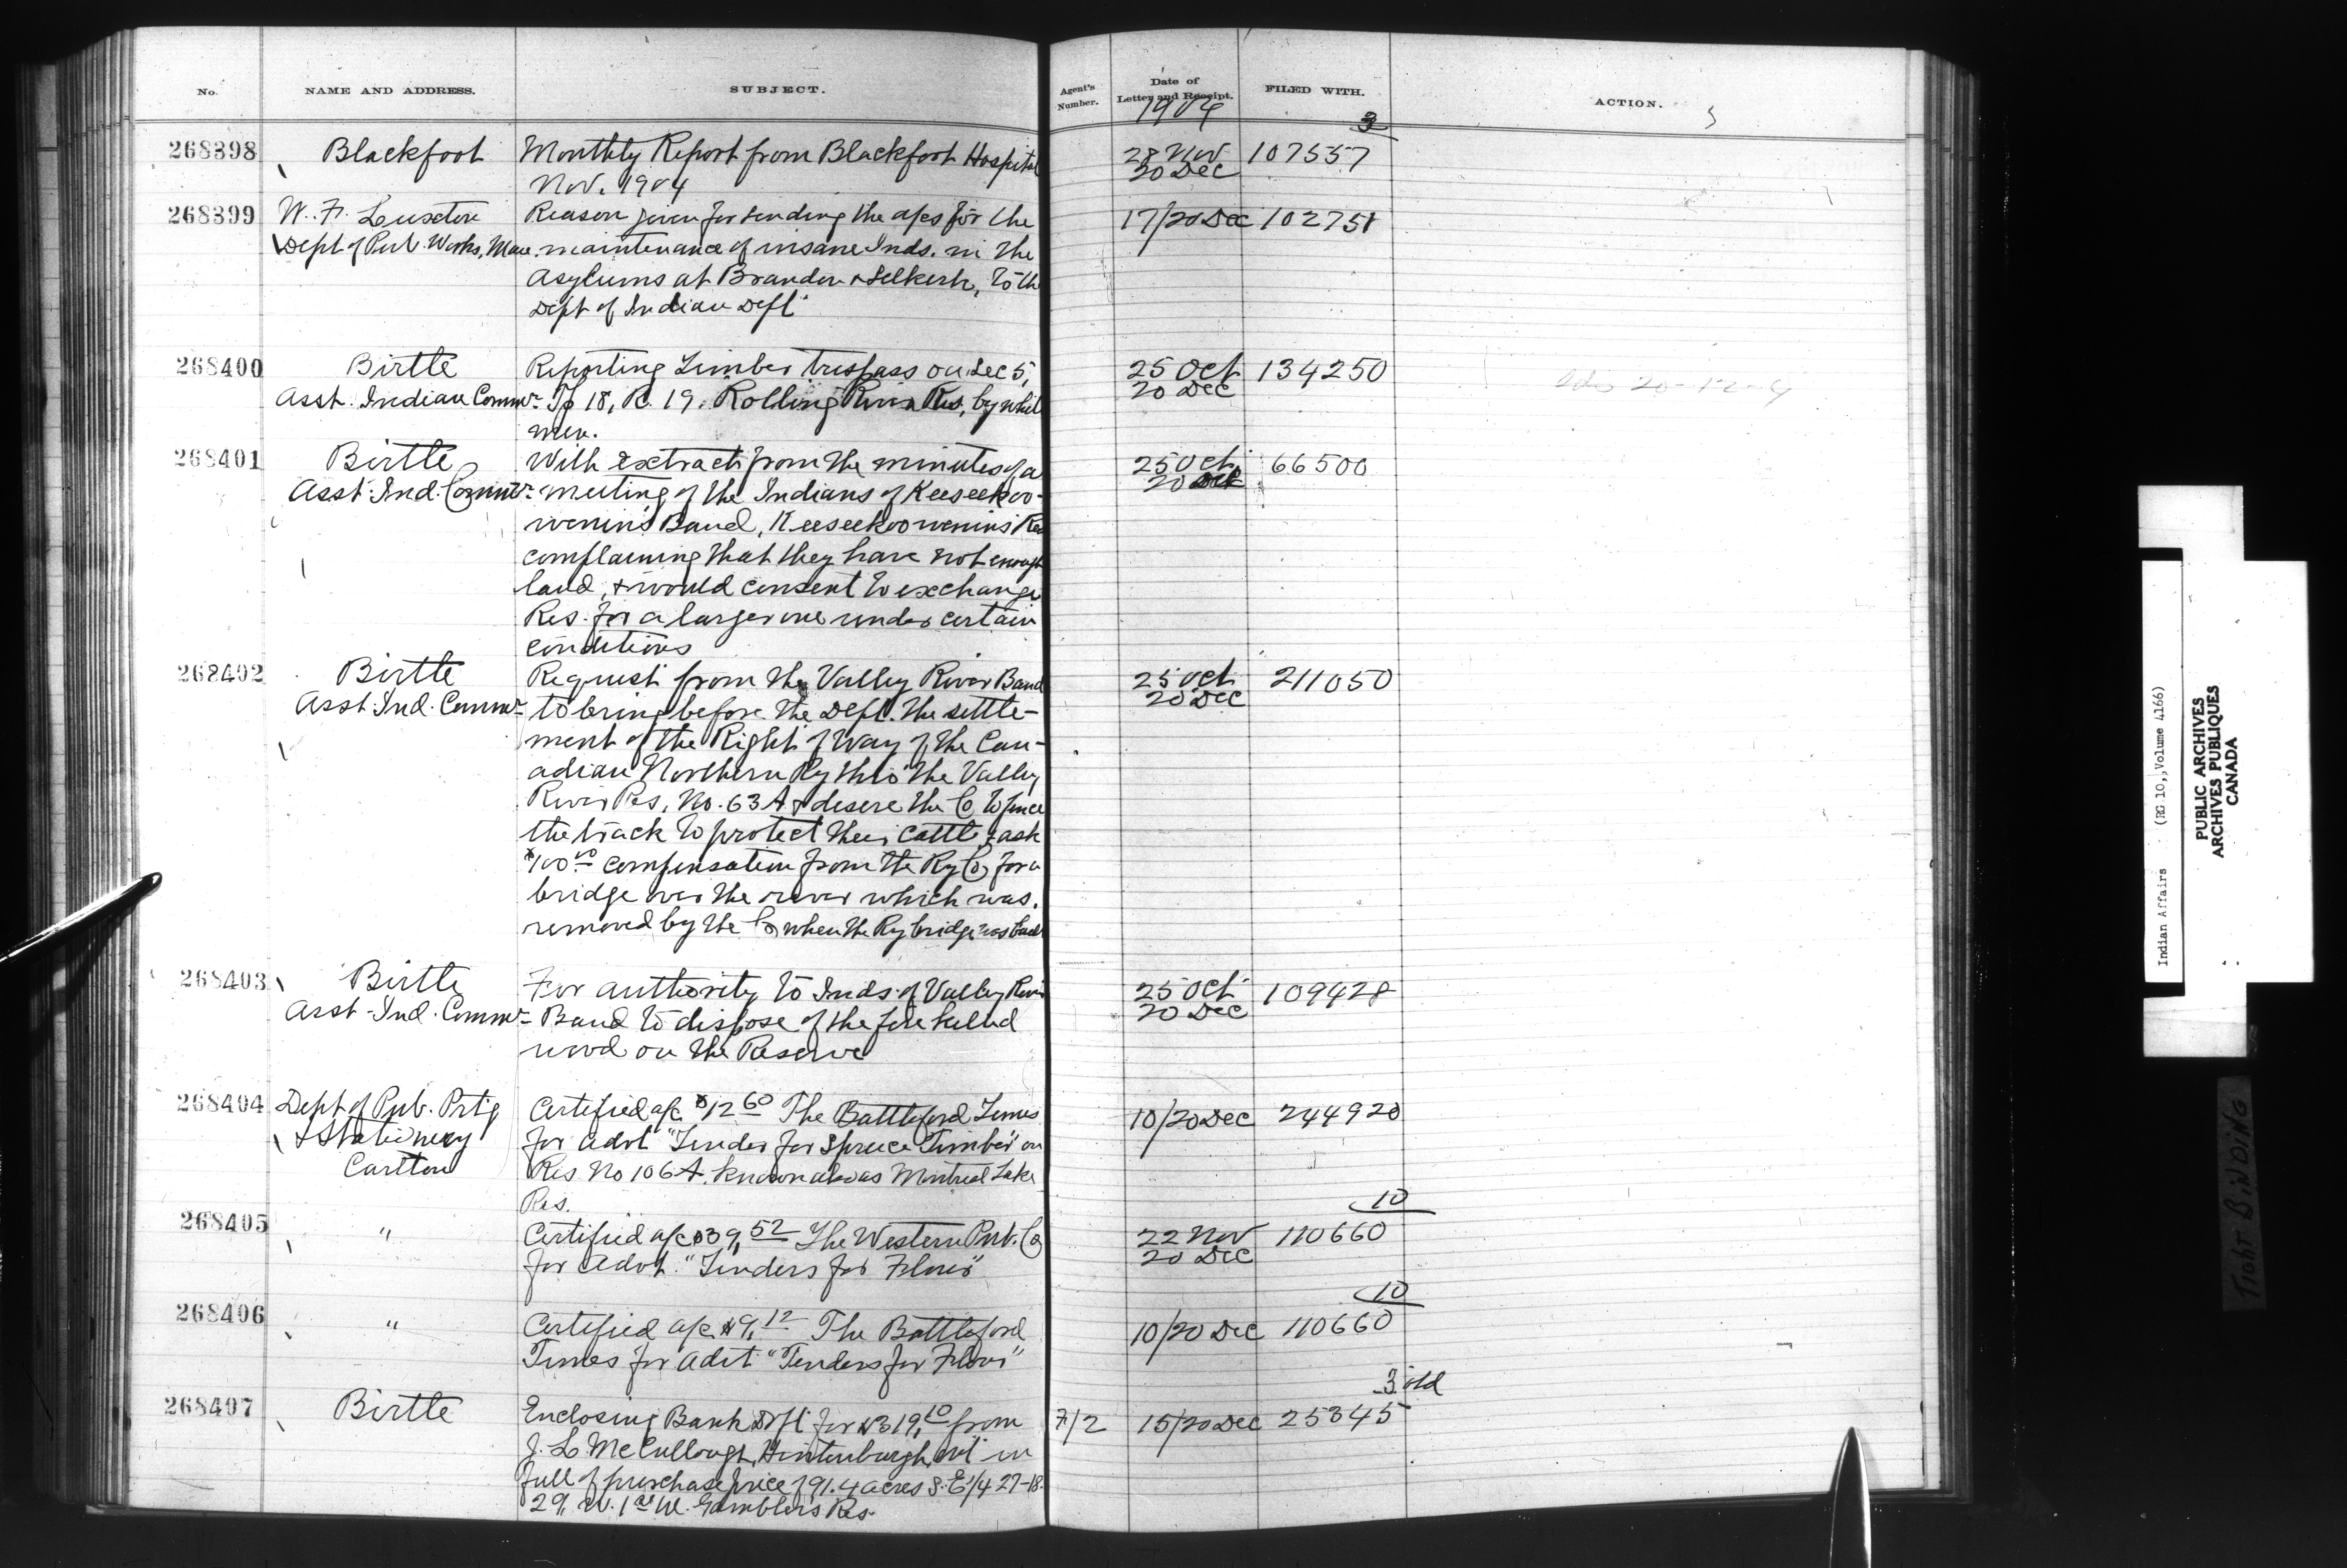 No. NAME AND ADDRESS. SUBJECT. Agent's Number. Date of Letter and Receipt. FILED WITH. ACTION.
1904
3
268398 Blackfoot Monthly Report from Blackfoot Hospital 28 Nov 107557
Nov. 1904 20 Dec
268399 W. F. Luxton Reason given for sending the a/cs for the 17/20 Dec 102751
Dept of Pub. Works, Man. maintenance of insane Inds. in the
Asylums at Brandon & Selkirk, to the
Dept of Indian Dept
268400 Birtle Reporting Timber trespass on Sec 5, 25 Oct 134250
Asst. Indian Commr. Tp 18, R. 19. Rolling River Res, by white 20 Dec
men.
268401 Birtle With extract from the minutes of a 25 Oct. 66500
Asst. Ind. Commr. meeting of the Indians of Keeseekoo- 20 Dec
wenin's Band, Keeseekoowenin's Res
complaining that they have not enough
land, & would consent to exchange
Res. for a larger one under certain
conditions
268402 Birtle Request from the Valley River Band 25 Oct 211050
Asst. Ind. Commr. to bring before the Dept. the settle- 20 Dec
ment of the Right of Way of the Can-
adian Northern Ry thro' the Valley
River Res, No. 63 A & desire the Co to fence
the track to protect their cattle & ask
$100.00 compensation from the Ry Co, for a
bridge over the river which was
removed by the Co when the Ry bridge was built
268403 Birtle For authority to Inds. of Valley River 25 Oct 109428
Asst. Ind. Commr. Band to dispose of the fire killed 20 Dec
wood on the Reserve
268404 Dept of Pub. Prtg Certified a/c $12 60 The Battleford Times 10/20 Dec 244920
& Stationery for advt "Tender for Spruce Timber" on
Carlton Res No 106 A. known also as Montreal Lake
Res.
10
268405 " Certified a/c $39, 52 The Western Pub. Co 22 Nov 110660
for Advt. "Tenders for Flour" 20 Dec
10
268406 " Certified a/c $9, 12 The Battleford 10/20 Dec 110660
Times for Advt. "Tenders for Flour"
3 old
268407 Birtle Enclosing Bank Dft for $319, 10 from 7/2 15/20 Dec 25345
J. L. McCullough, Hintonburgh, Ont in
full of purchase price of 91.4 acres S. E 1/4 27-18-
29, W. 1st M. Gambler's Res.
Indian Affairs (RG 10, Volume 4166)
PUBLIC ARCHIVES
ARCHIVES PUBLIQUES
CANADA
TIGHT BINDING